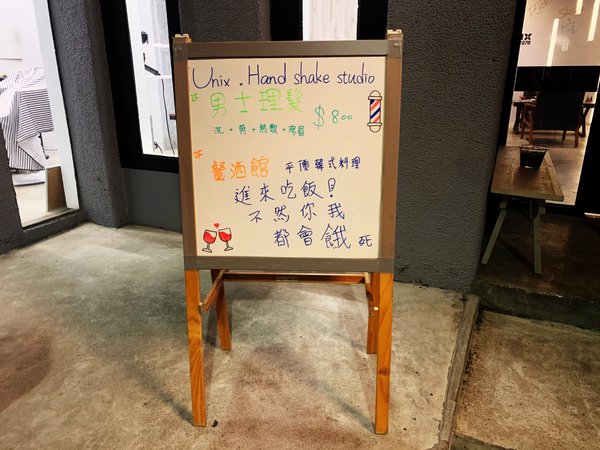 Unix . Hand shake studio
1F 男士理髮 $800
洗 + 剪 + 熱敷 + 修眉
2F 餐酒館 平價韓式料理
進來吃飯！
不然你我
都會餓死